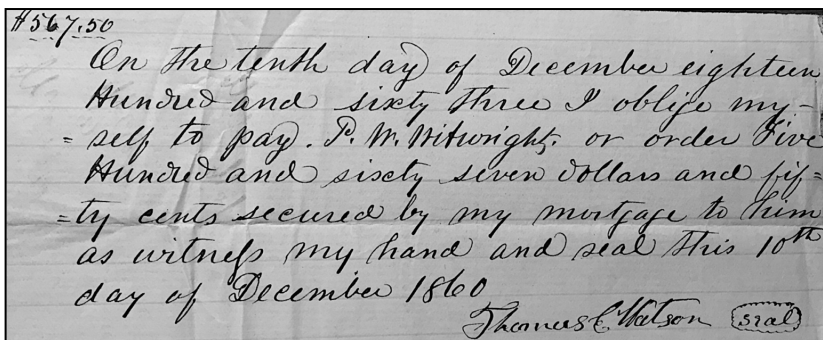 $567.50
On the tenth day of December eighteen
Hundred and sixty three I oblige my-
= self to pay. P. W. Witwright. or order Five
Hundred and sixty seven dollars and fif=
=ty cents secured by my mortgage to him
as witness my hand and seal this 10th
day of December 1860
Thomas C Watson seal